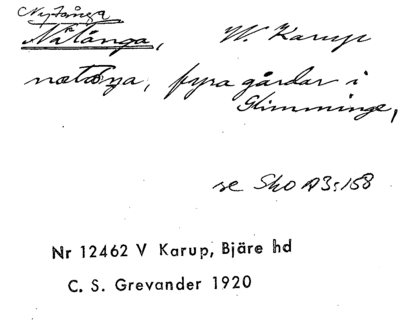 Nytånga
Nåtånga, W. Karup
fyra gårdar i
Glimminge,
se Sko A3:158
Nr 12462 V Karup, Bjäre hd
C. S. Grevander 1920